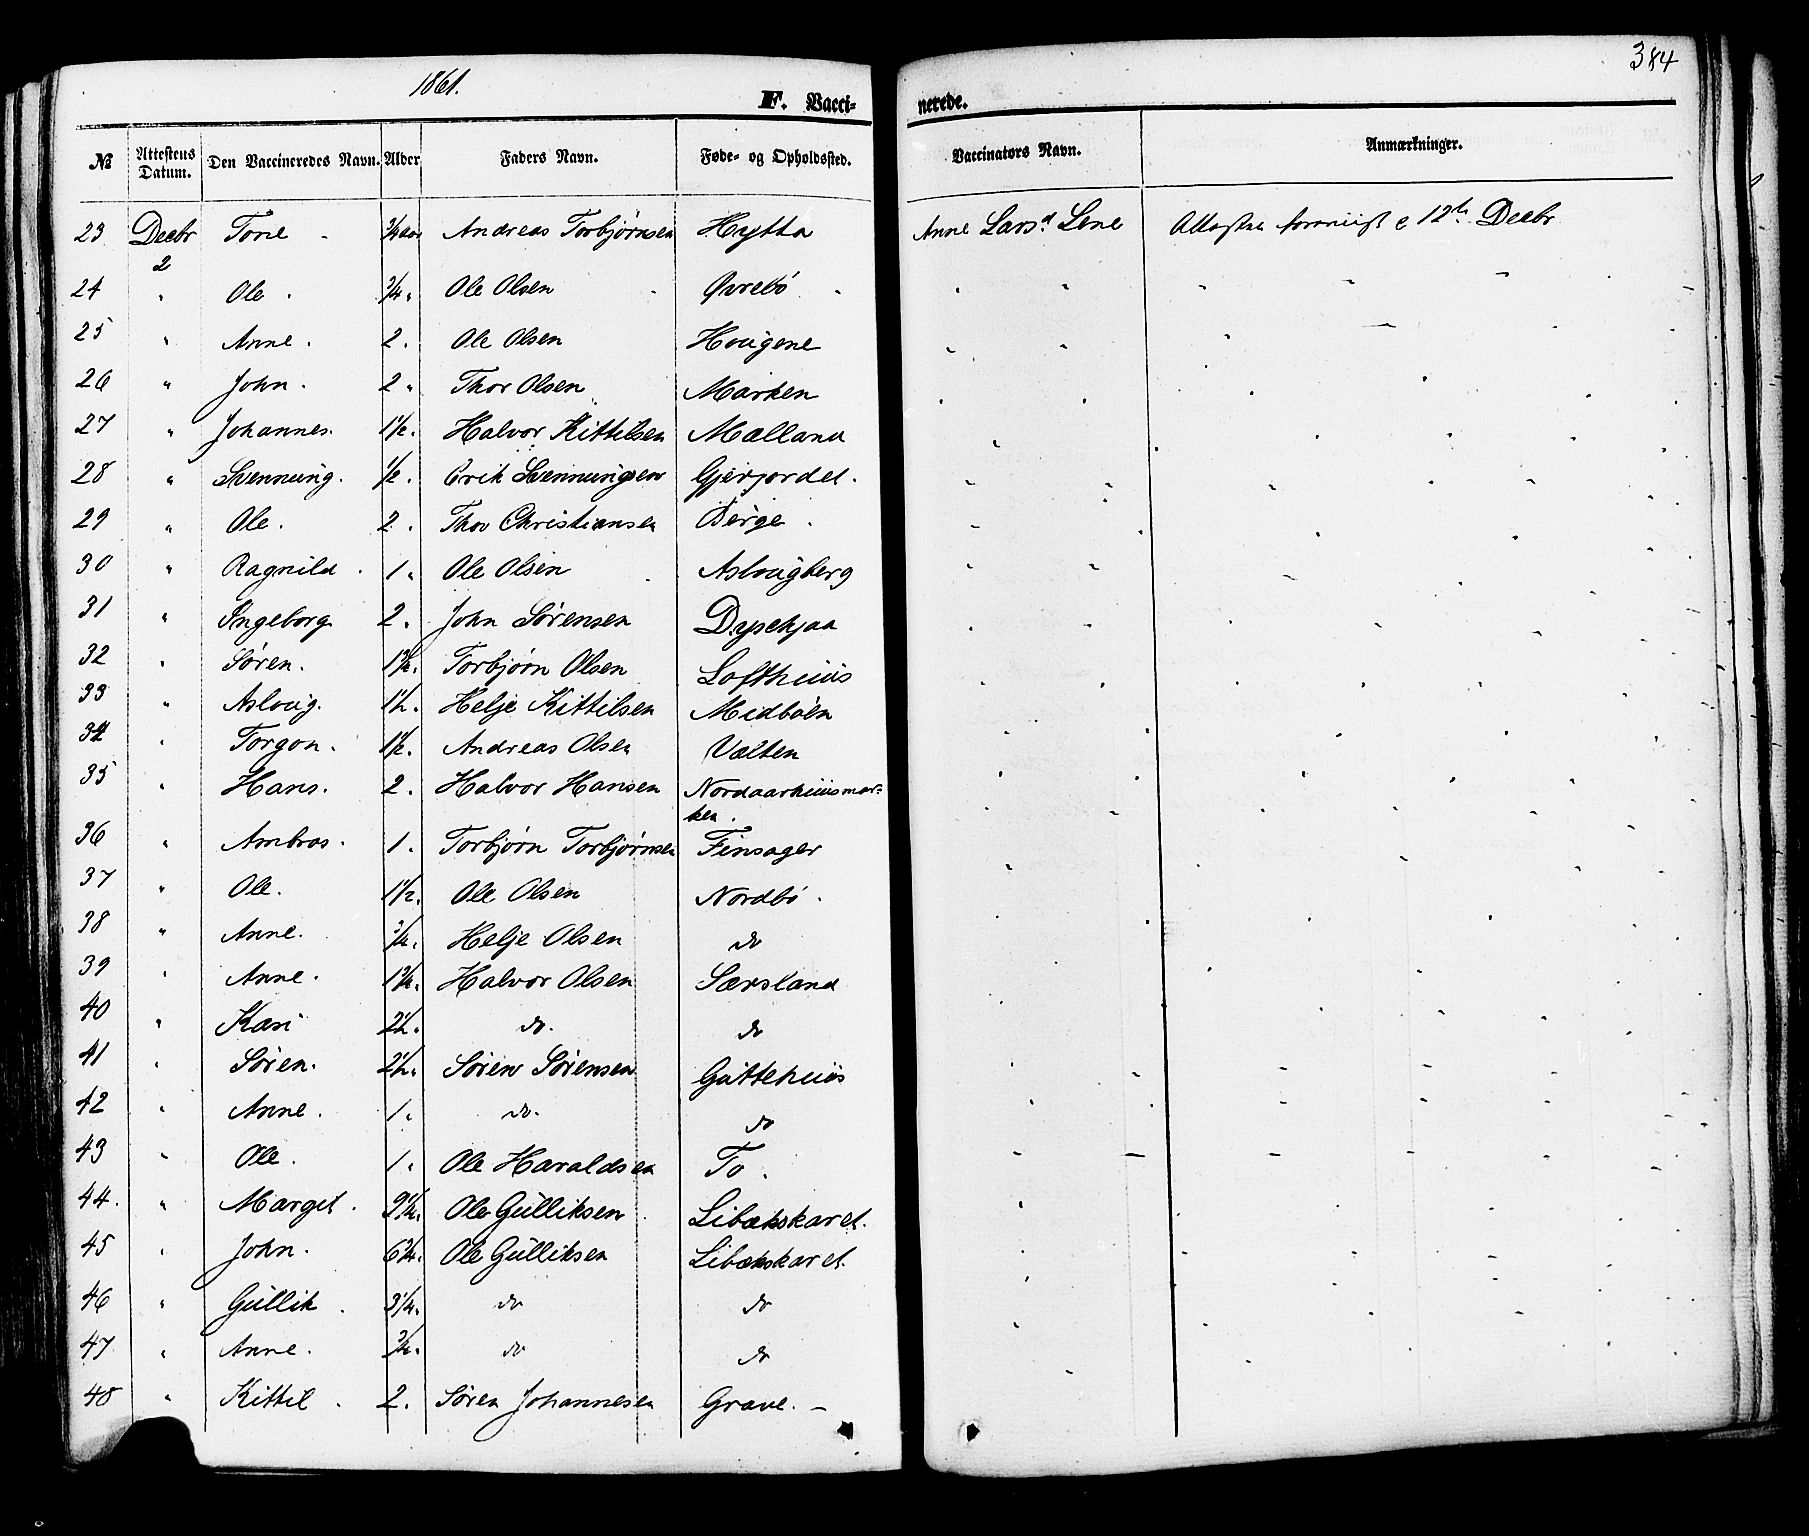 1861.
384
F. Vacci-
nerede.
№ Attestens Datum. Den Vaccineredes Navn. Alder Faders Navn. Føde- og Opholdssted. Vaccinators Navn. Anmærkninger.
23 Decbr 2 Tone 3/4 aar Andreas Torbjørnsen Hytta Anne Larsd Lene 12te Decbr
24 " Ole . 3/4 " Ole Olsen Øvrebö
25 " Anne . 2 . Ole Olsen Hougene
26 " John . 2 " Thor Olsen Marken
27 " Johannes. 1 1/2 . Halvor Kittilsen Mælland
28 " Svennung . 1/2 . Erik Svennungsen Gjerjordet .
29 " Ole . 2 . Thov Christiansen Berge .
30 " Ragnild . 1 " Ole Olsen Aslougberg
31 " Ingeborg 2 . John Sørensen Dyschjaa
32 " Søren . Torbjørn Olsen Lofthuus
33 " Asloug . 1 1/2 . Helje Kittilsen Midböen
34 " Torgon . 1 1/2 . Andreas Olsen Valten
35 " Hans . 2 . Halvor Hansen Nordaarhuusmar-
ken .
36 " Ambros . 1 . Torbjørn Torbjørnsen Finsager
37 " Ole . 1 1/2 . Ole Olsen Nordbö .
38 " Anne . 3/4 . Helje Olsen do
39 " Anne . 1 3/4 . Halvor Olsen Særsland
40 " Kari 2 1/2 . do . do
41 " Søren . 2 1/2 " Søren Sørensen Gütterhuus
42 " Anne . 1 " do . do
43 " Ole . 1 " Ole Haraldsen To .
44 . " Marget . 9 1/4 . Ole Gülliksen Libækskaret .
45 " John . 6 3/4 . Ole Gülliksen Libækskaret .
46 " Güllik . 3 1/4 . do do
47 " Anne . 3/4 . do do
48 " Kittil . 2 . Søren Johannesen Grave . –